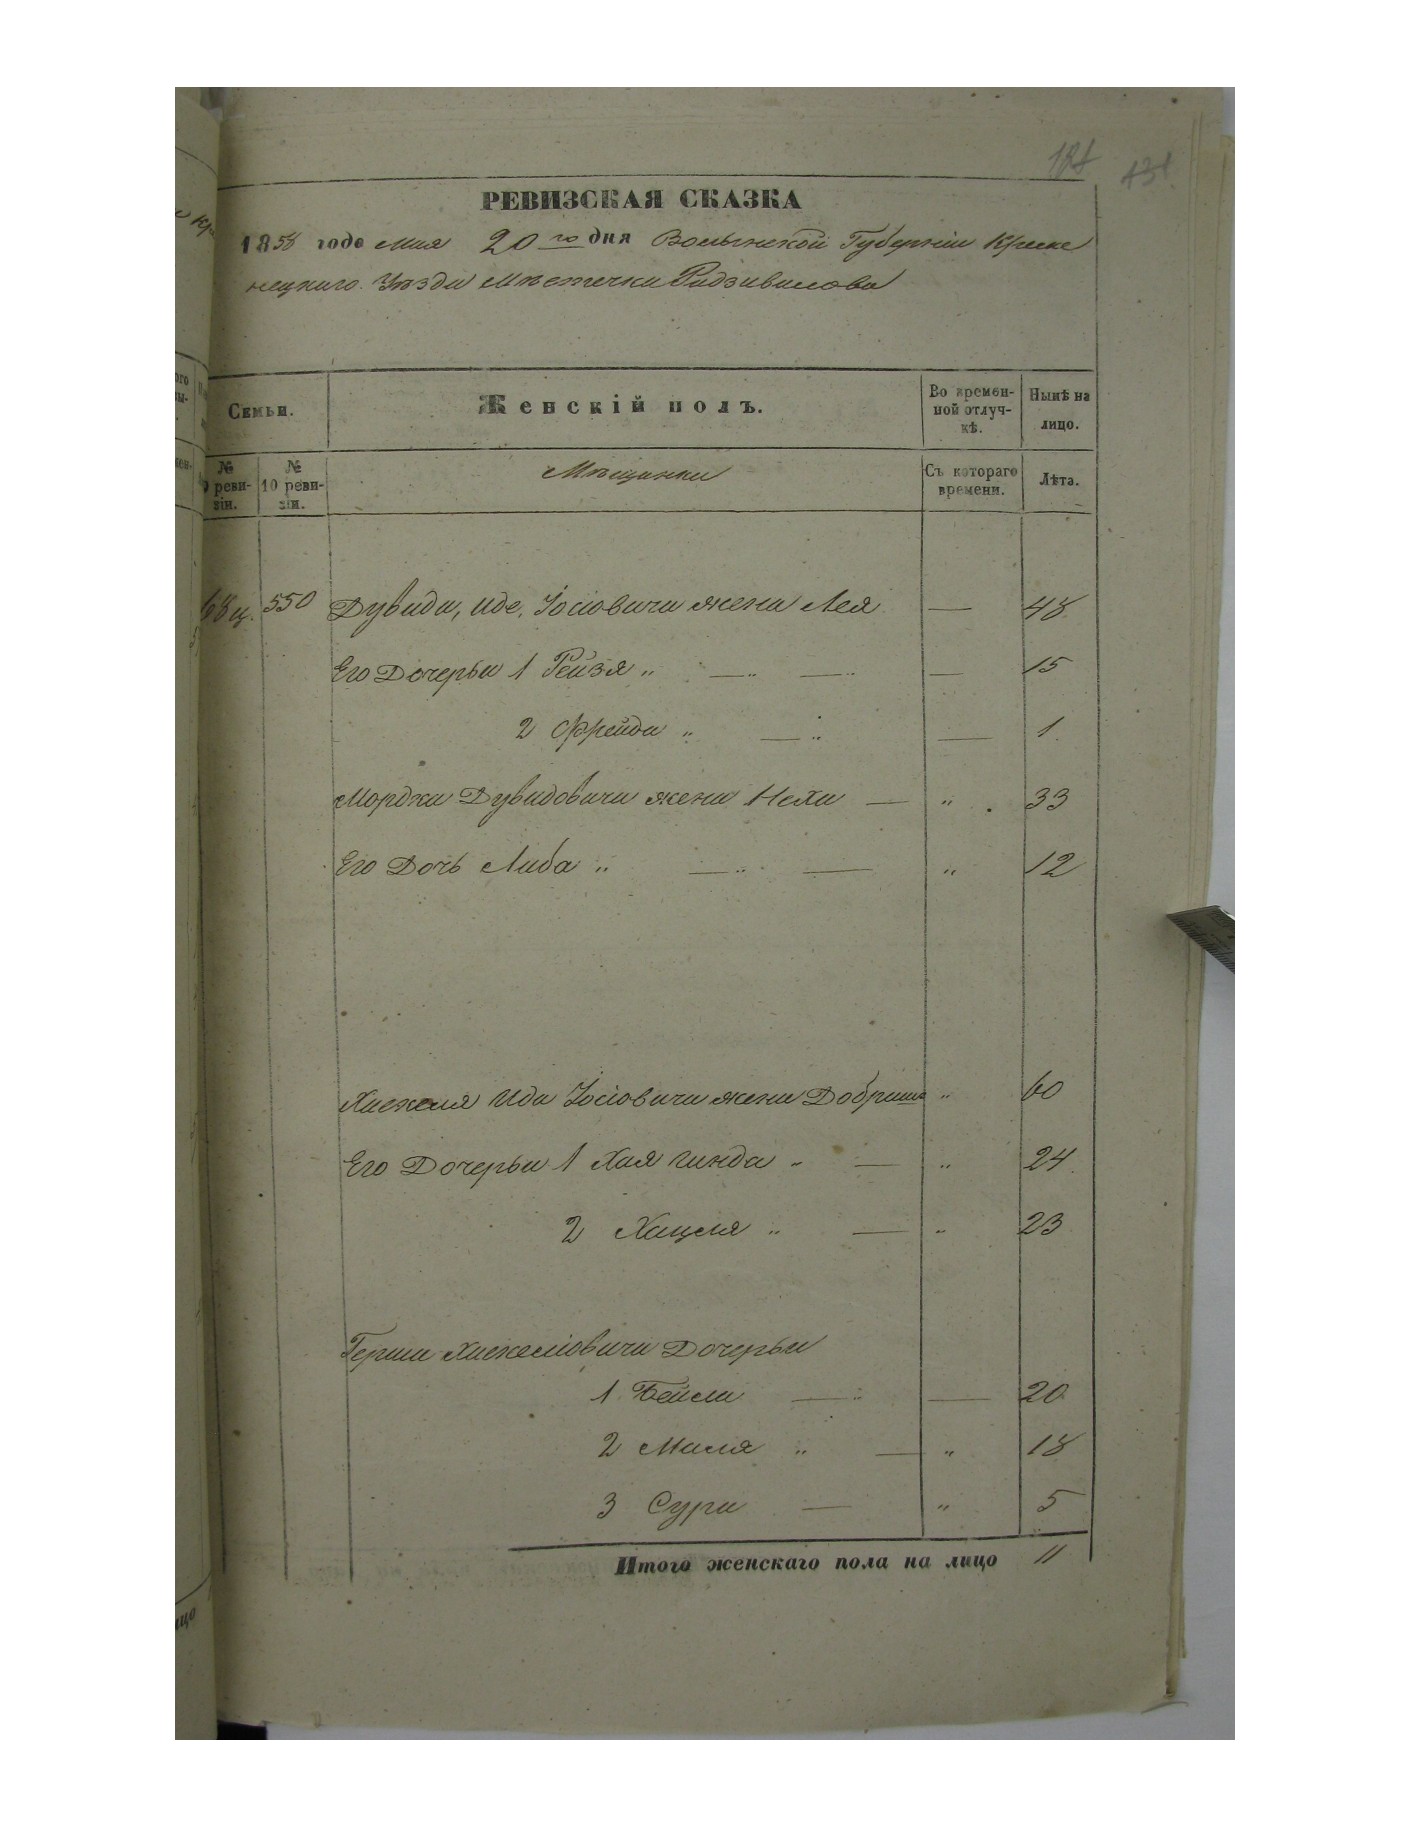 РЕВИЗСКАЯ СКАЗКА
1858 года Мая 20го дня Волынской Губерніи Креме
нецкаго Уѣзда Мѣстечка Радзивилова
Семьи.
Женскій полъ.
Во времен-
ной отлуч-
кѣ.
Нынѣ на
лицо.
№
реви-
зіи.
№
10 реви-
зіи.
Мѣщанки
Съ котораго
времени.
Лѣта.
550 Дувида, Иде, Іосіовича жена Лея — 48
Его Дочерьи 1 Рейзя „ — „ — „ — 15
2 Фрейда „ — „ — 1
Мордка Дувидовича жена Неха — „ 33
Его Дочь Либа „ — „ — „ 12
Хаскеля Ида Іосіовича жена Добриша „ 60
Его Дочерьи 1 Хая Гинда „ — „ 24
2 Хацля „ — „ 23
Герша Хаскеліовича Дочерьи
1 Бейла — „ — 20
2 Маля „ — „ 18
3 Сура — „ 5
Итого женскаго пола на лицо 11